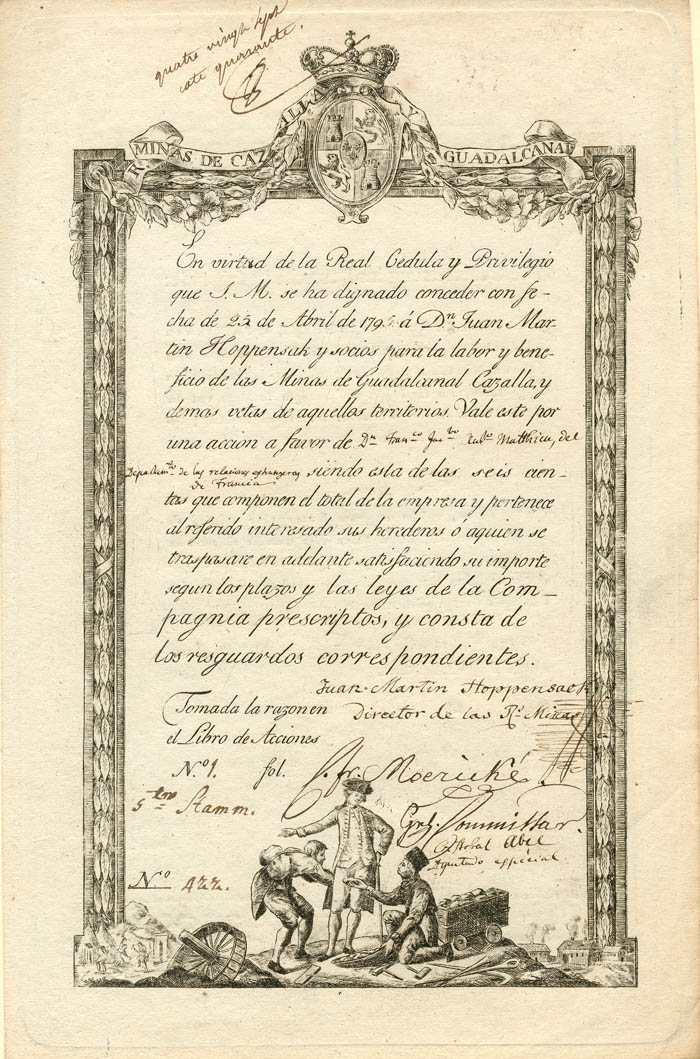 quatre vingt sept
cote quarante.
RL MINAS DE CAZALLA Y GUADALCANAL
En virtud de la Real Cedula y Privilegio
que S. M. se ha dignado conceder con fe-
cha de 25 de Abril de 1795 á Dn. Juan Mar-
tin Hoppensak y socios para la labor y bene-
ficio de las Minas de Guadalcanal Cazalla, y
demas vetas de aquellos territorios. Vale este por
una accion a favor de Dn. Franco Matthieu, del
Departamto de las relaciones estrangeras siendo esta de las seis cien-
de Francia
tas que componen el total de la empresa y pertenece
al referido interesado sus herederos ó aquien se
traspasare en adelante satisfaciendo su importe
segun los plazos y las leyes de la Com-
pagnia prescriptos, y consta de
los resguardos correspondientes.
Juan Martin Hoppensack
Director de las Rs. Minas
Tomada la razon en
el Libro de Acciones
No. 1. fol.
C. fr. Moerické.
5 Stamm.
Commissar.
Cristobal Abel
Diputado especial
N.o 422.